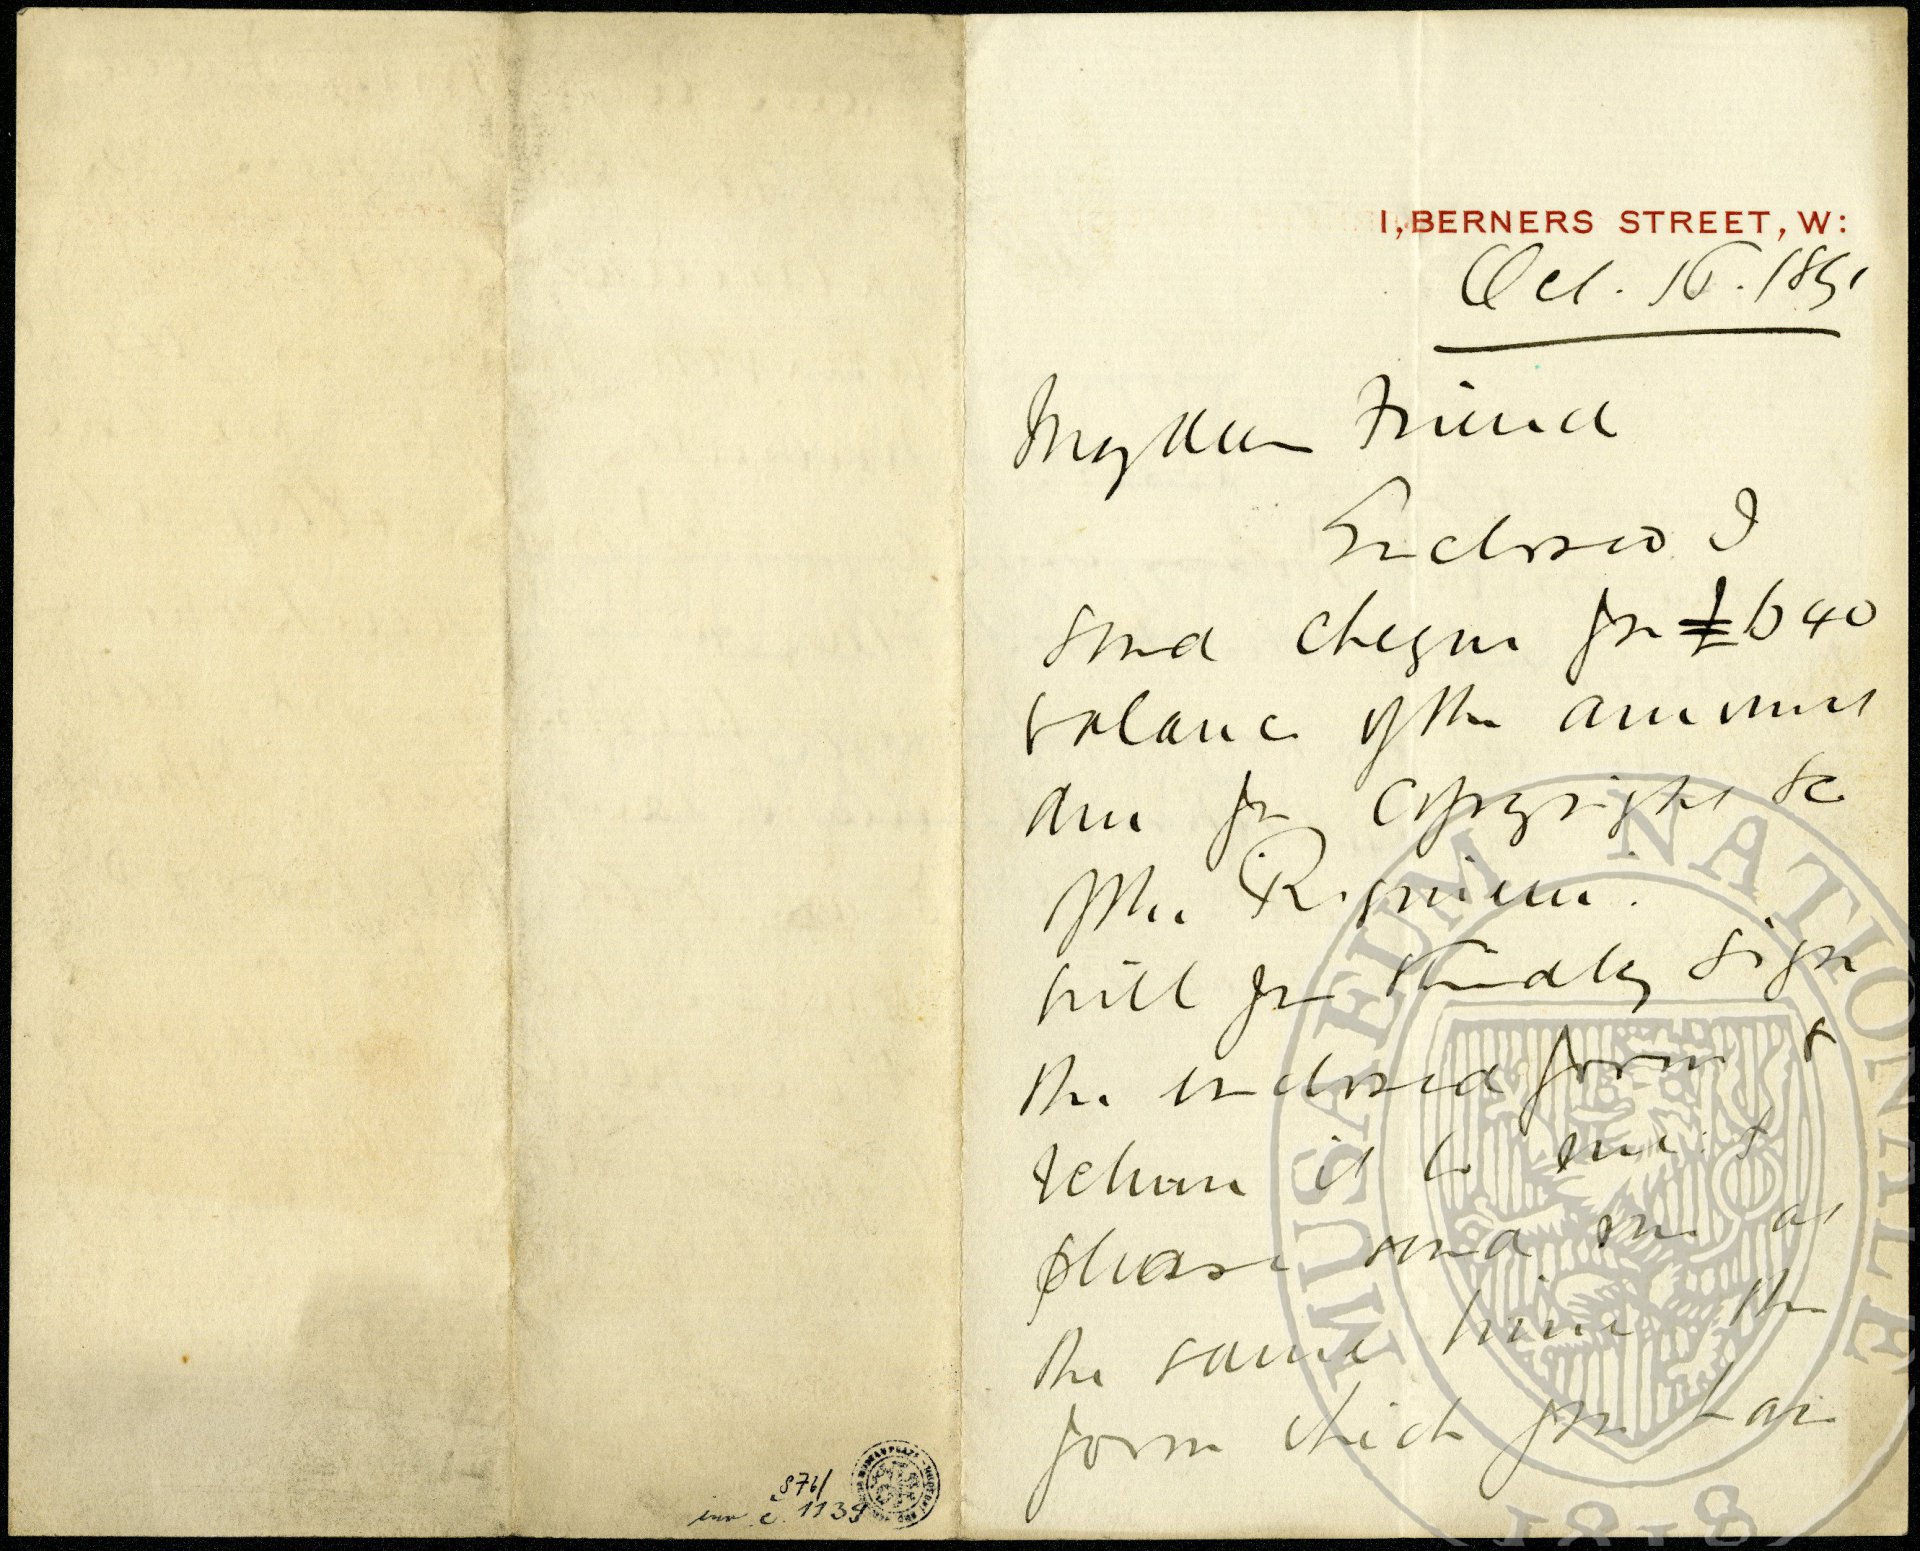 1, BERNERS STREET, W:
Oct. 16. 1891
My dear Friend
Enclosed I
send cheque for £640
balance of the amount
due for copyright &c
of the Requiem.
Will you kindly sign
the enclosed form &
return it to me: &
please send me at
the same time the
form which you have
876/
inv. č. 1139
MUSAEUM NATIONALE
1818